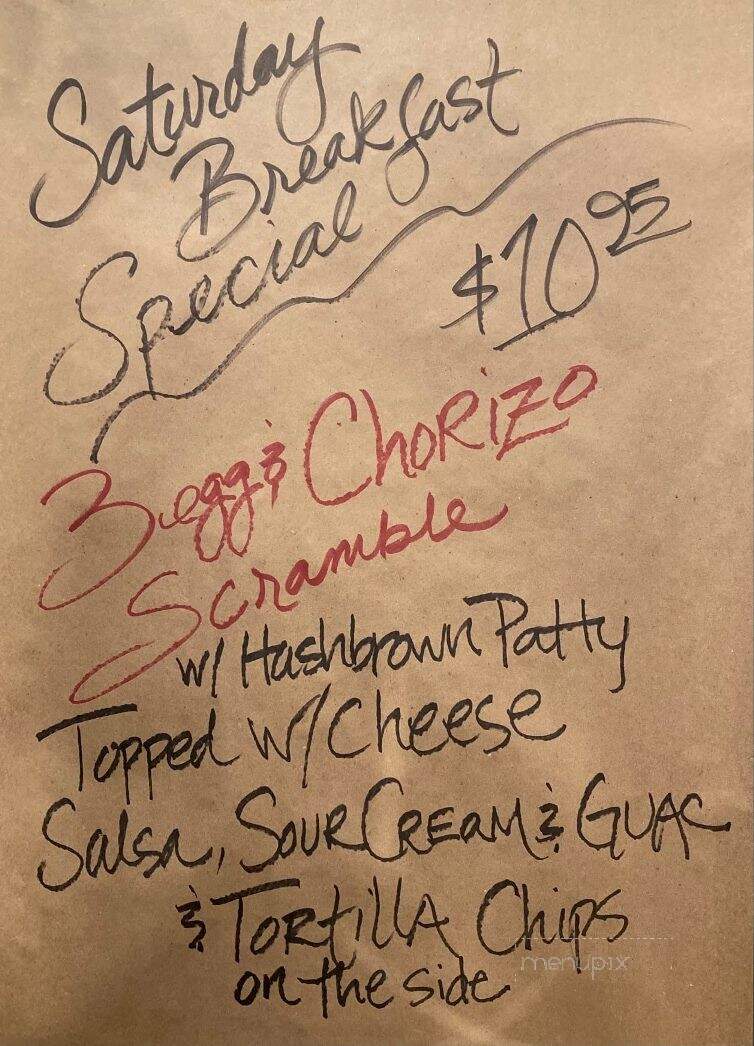 Saturday
Breakfast
Special
$10.95
3 egg & Chorizo
Scramble
w/ Hashbrown Patty
Topped w/ Cheese
Salsa, Sour Cream & Guac
& Tortilla Chips
on the side
menupix